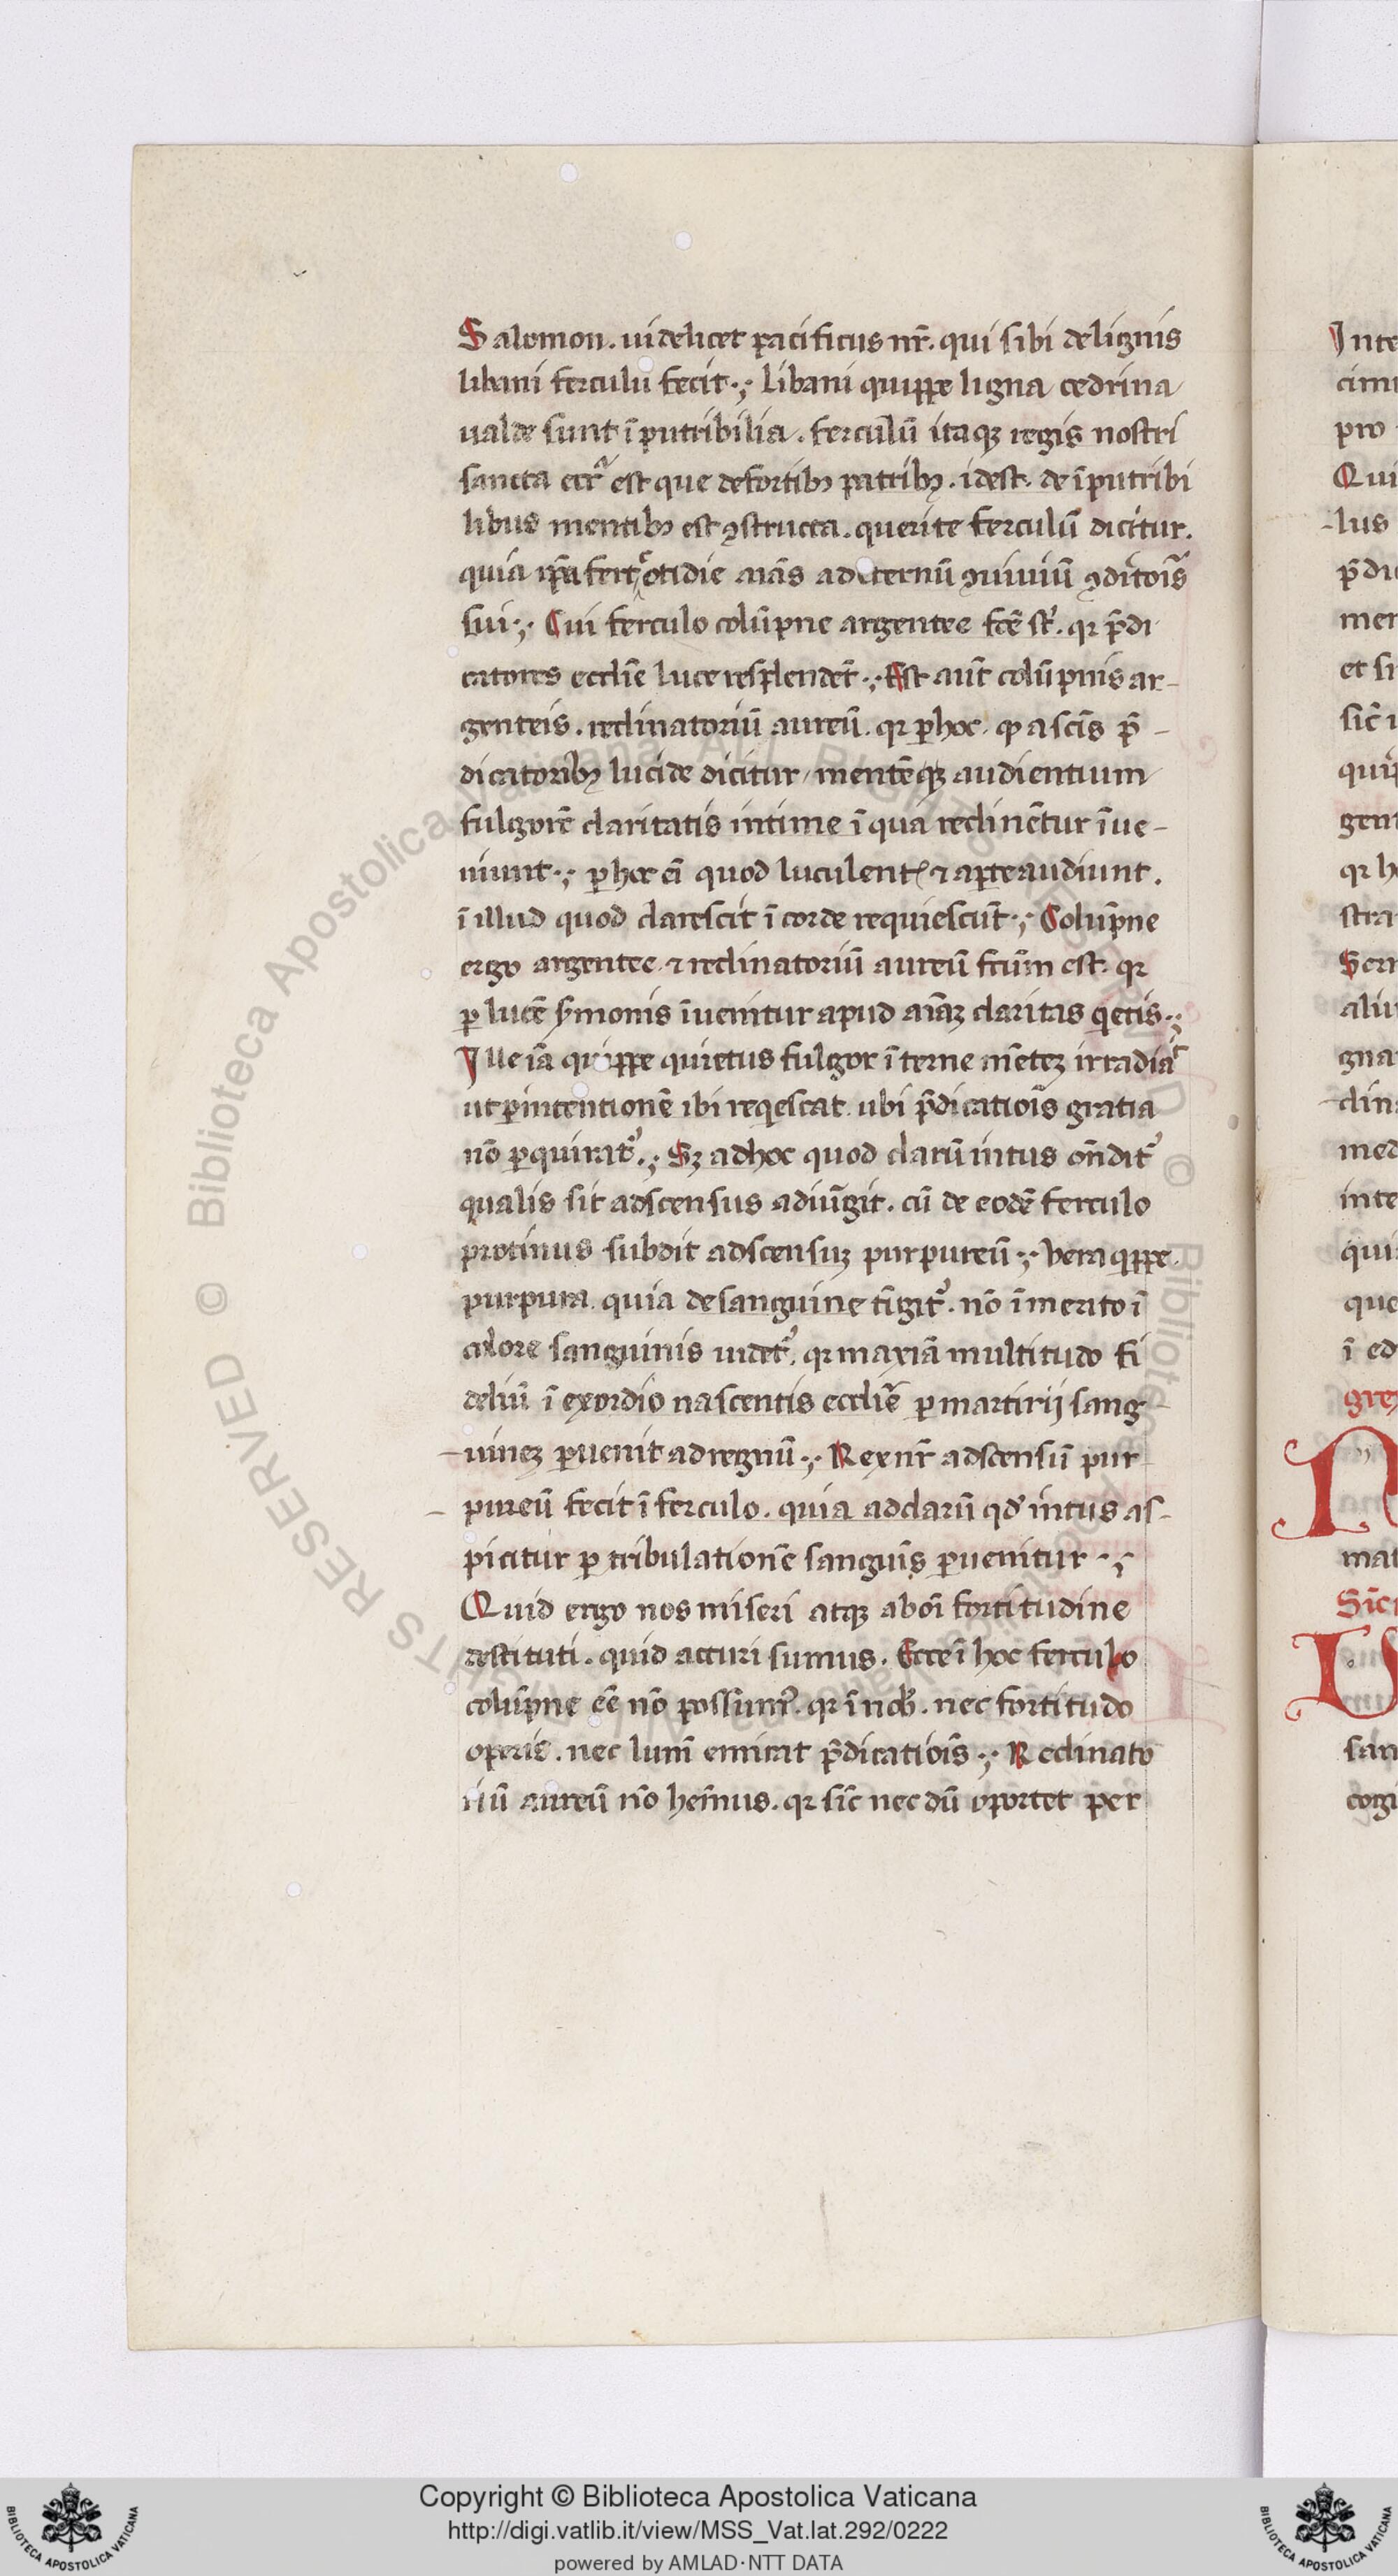 Salomon. uidelicet pacificus nr̄. qui sibi delignis
libani ferculu fecit·; libani quippe ligna cedrina
ualde sunt īputribilia. ferculū itaqꝫ regis nostri
sancta eccͣ est que defortibꝫ patribꝫ. idest. de īputribi
libus mentibꝫ est ꝯstructa. que rite ferculū dicitur.
quia ip̄a fert cotidie aīas ad eternū ꝯuiuiū ꝯditoīs
sui·; Cui ferculo colūpne argentee fc̄e st̄. qr p̄di
catores eccl̄ie luce resplendēt·; Est aut̄ colūpnis ar-
genteis. reclinatoriū aureū. qr ꝑhoc. ꝙ a sc̄is p̄-
dicatoribꝫ lucide dicitur mentēqꝫ audientium
fulgorē claritatis intime ī qua reclinētur īue-
niunt·; ꝑhoc ēi quod luculent̄ ⁊ aperte audiunt.
ī illud quod clarescit ī corde requiescūt·; Colūpne
ergo argentee. ⁊ reclinatoriū aureū fc̄ūm est. qr
ꝑ lucē s̄monis īuenitur apud aīaꝫ claritas qͥetis·;
Ille iā quippe quietus fulgor īterne mēteꝫ irradiaͭ
ut ꝑintentionē ibi reqͥescat. ubi p̄dicatioīs gratia
nō ꝑquiratͬ·; Sꝫ adhoc quod clarū intus on̄ditͬ
qualis sit adscensus adiūgit. cū de eodē ferculo
protinus subdit adscensuꝫ purpureū·; Vera qͥppe.
purpura. quia desanguine tīgitͬ. nō īmerito ī
colore sanguinis uidetͬ. qr maxīa multitudo fi
deliū ī exordio nascentis eccl̄ie ꝑmartirij sang-
-uineꝫ ꝑuenit ad regnū·; Rex nr̄ adscensū pur-
- pureū fecit ī ferculo. quia adclarū qd̓ intus as-
picitur ꝑ tribulationē sanguīs ꝑuenitur·;
Quid ergo nos miseri atqꝫ ab oī fortitudine
destituti. quid acturi sumus. Ecce ī hoc ferculo
colūpne eē nō possumꝰ. qr ī nob̓. nec fortitudo
operis. nec lumē emicat p̄dicatioīs·; Reclinato
riū aureū nō hem̄us. qr sic̄ nec dū oportet per
Copyright © Biblioteca Apostolica Vaticana
http://digi.vatlib.it/view/MSS_Vat.lat.292/0222
powered by AMLAD·NTT DATA